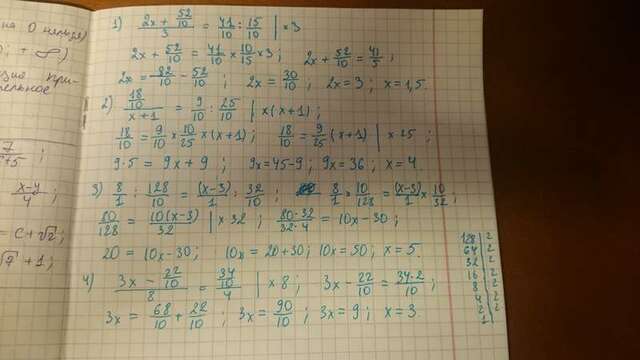 на 0 нельзя)
; + ∞)
ция при-
тельное
7/+5 ;
x-y/4 ;
= c + √2 ;
√7 + 1 ;
1) (2x + 52/10)/3 = 41/10 : 15/10 | ×3
2x + 52/10 = 41/10 × 10/15 × 3 ; 2x + 52/10 = 41/5 ;
2x = 82/10 - 52/10 ; 2x = 30/10 ; 2x = 3 ; x = 1,5.
2) (18/10)/(x+1) = 9/10 : 25/10 | ×(x+1) ;
18/10 = 9/10 × 10/25 × (x+1) ; 18/10 = 9/25 (x+1) | × 25 ;
9·5 = 9x + 9 ; 9x = 45-9 ; 9x = 36 ; x = 4.
3) 8/1 : 128/10 = (x-3)/1 : 32/10 ; 8/1 × 10/128 = (x-3)/1 × 10/32 ;
80/128 = 10(x-3)/32 | × 32 ; 80·32/32·4 = 10x - 30 ;
20 = 10x - 30 ; 10x = 20 + 30 ; 10x = 50 ; x = 5.
4) (3x - 22/10)/8 = (34/10)/4 | × 8 ; 3x - 22/10 = 34·2/10 ;
3x = 68/10 + 22/10 ; 3x = 90/10 ; 3x = 9 ; x = 3.
128 | 2
64 | 2
32 | 2
16 | 2
8 | 2
4 | 2
2 | 2
1